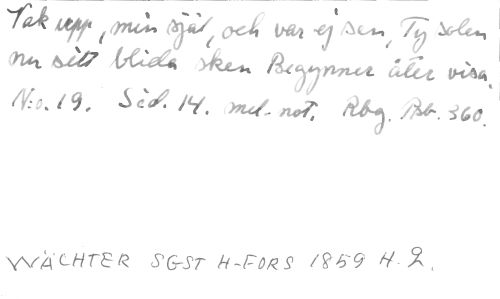 Vak upp, min själ, och var ej sen, Ty solen
nu sitt blida sken Begynner åter visa.
N:o. 19. Sid. 14. mel.-not. Rbg. Psb. 360.
WÄCHTER SGST H-FORS 1859 H. 2.